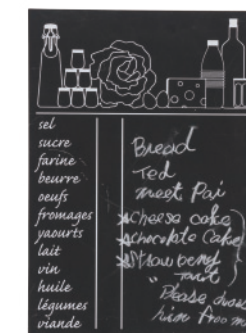 sel
sucre
farine
beurre
oeufs
fromages
yaourts
lait
vin
huile
légumes
viande
Bread
Ted
meet Pai
cheese cake
chocolate Cake
Strawberry
" tart
Please
him